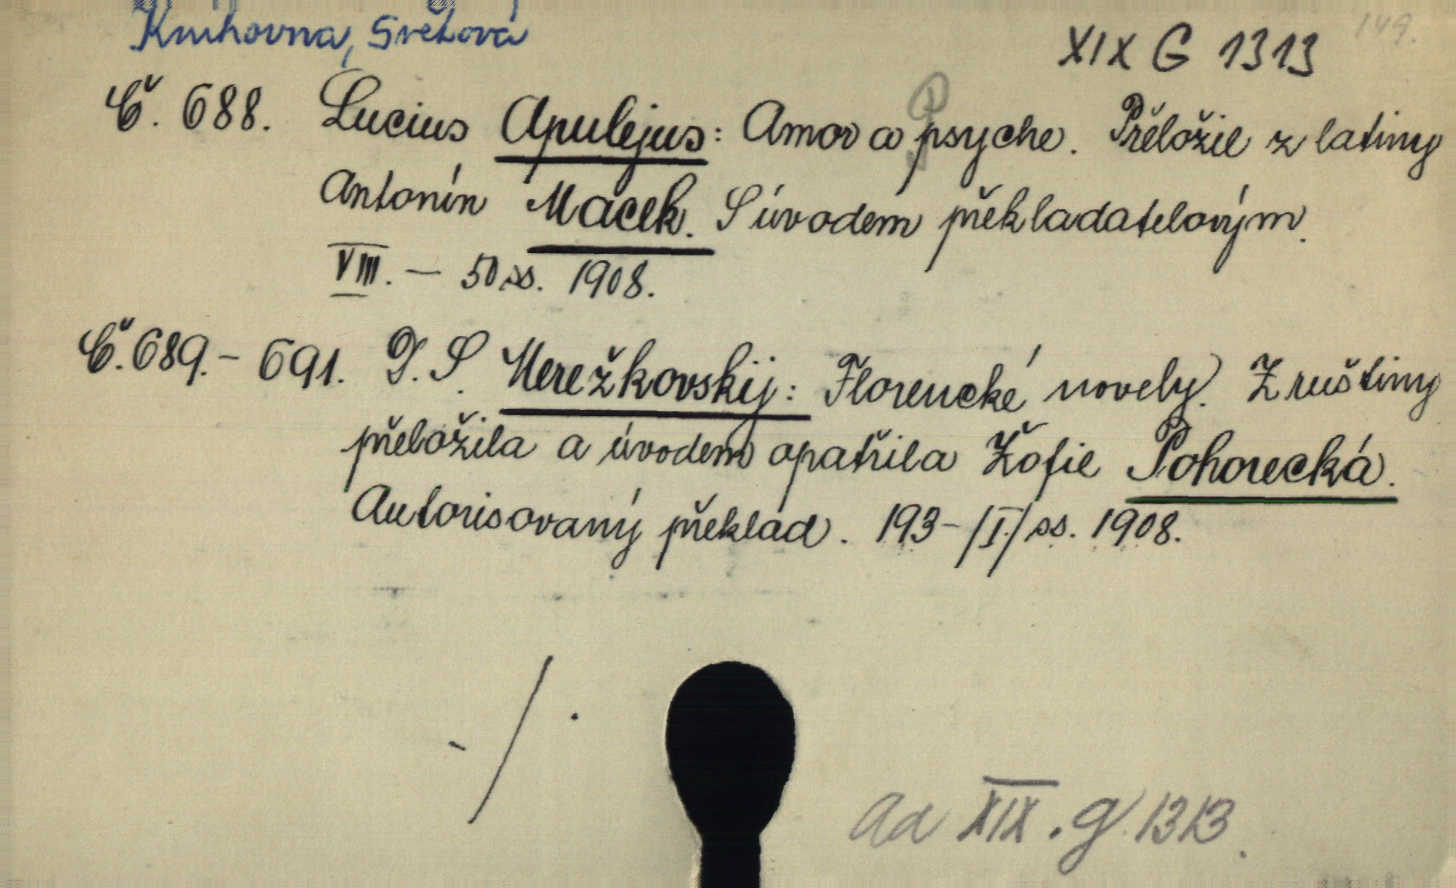 Knihovna, Světová
XIX G 1313
149.
Č. 688. Lucius Apulejus: Amor a psyche. Přeložil z latiny
Antonín Macek. S úvodem překladatelovým.
VIII. — 50 ss. 1908.
Č. 689. - 691. D. S. Merežkovskij: Florencké novely. Z ruštiny
přeložila a úvodem opatřila Žofie Pohorecká.
Autorisovaný překlad. 193 - /I./ ss. 1908.
- / .
Ad XIX. g 1313.